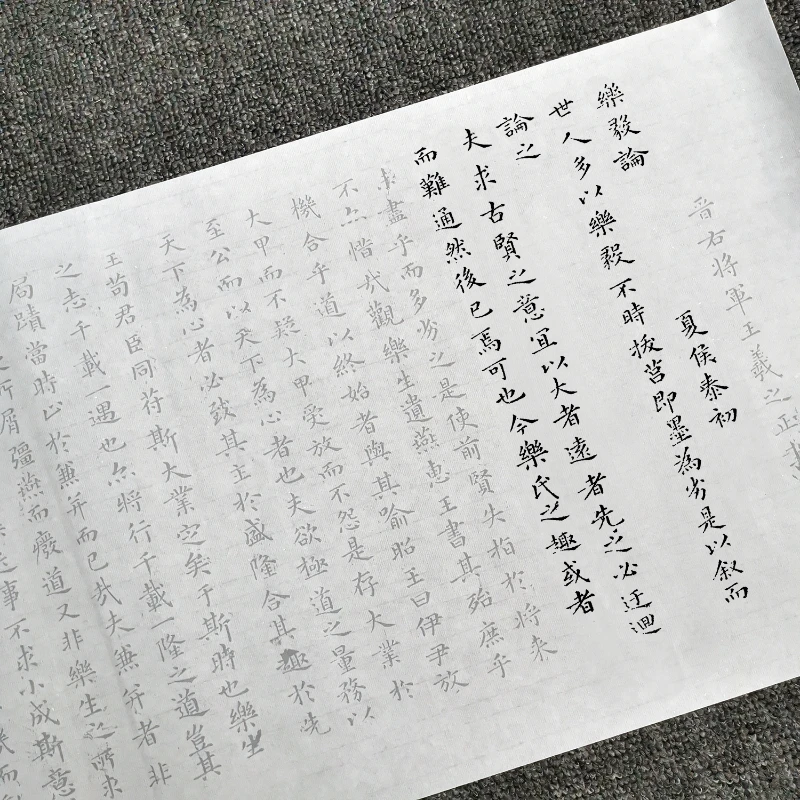 晉右将軍王羲之正書
樂毅論 夏侯泰初
世人多以樂毅不時拔莒即墨為劣是以叙而
論之
夫求古賢之意宜以大者遠者先之必迂迴
而難通然後已焉可也今樂氏之趣或者
盡乎而多劣之是使前賢失指於将来
不亦惜哉觀樂生遺燕惠王書其殆庶乎
機合乎道以終始者與其喻昭王曰伊尹放
大甲而不疑大甲受放而不怨是存大業於
至公而以天下為心者也夫欲極道之量務以
天下為心者必致其主於盛隆合其趣於先
王苟君臣同苻斯大業定矣于斯時也樂生
之志千載一遇也亦将行千載一隆之道豈其
局蹟當時止於兼并而已哉夫兼并者非
所屑彊燕而廢道又非樂生之所求
事不求小成斯意